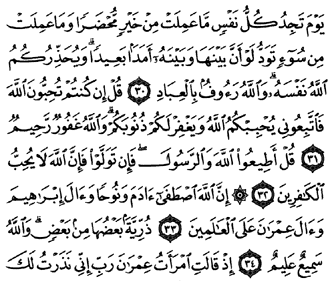 يَوْمَ تَجِدُ كُلُّ نَفْسٍ مَّا عَمِلَتْ مِنْ خَيْرٍ مُّحْضَرًا وَمَا عَمِلَتْ
مِن سُوٓءٍ تَوَدُّ لَوْ أَنَّ بَيْنَهَا وَبَيْنَهُۥٓ أَمَدًۢا بَعِيدًا ۗ وَيُحَذِّرُكُمُ
ٱللَّهُ نَفْسَهُۥ ۗ وَٱللَّهُ رَءُوفٌۢ بِٱلْعِبَادِ ٣٠ قُلْ إِن كُنتُمْ تُحِبُّونَ ٱللَّهَ
فَٱتَّبِعُونِى يُحْبِبْكُمُ ٱللَّهُ وَيَغْفِرْ لَكُمْ ذُنُوبَكُمْ ۗ وَٱللَّهُ غَفُورٌ رَّحِيمٌ
٣١ قُلْ أَطِيعُوا۟ ٱللَّهَ وَٱلرَّسُولَ ۖ فَإِن تَوَلَّوْا۟ فَإِنَّ ٱللَّهَ لَا يُحِبُّ
ٱلْكَٰفِرِينَ ٣٢ ۞ إِنَّ ٱللَّهَ ٱصْطَفَىٰٓ ءَادَمَ وَنُوحًا وَءَالَ إِبْرَٰهِيمَ
وَءَالَ عِمْرَٰنَ عَلَى ٱلْعَٰلَمِينَ ٣٣ ذُرِّيَّةًۢ بَعْضُهَا مِنۢ بَعْضٍ ۗ وَٱللَّهُ
سَمِيعٌ عَلِيمٌ ٣٤ إِذْ قَالَتِ ٱمْرَأَتُ عِمْرَٰنَ رَبِّ إِنِّى نَذَرْتُ لَكَ